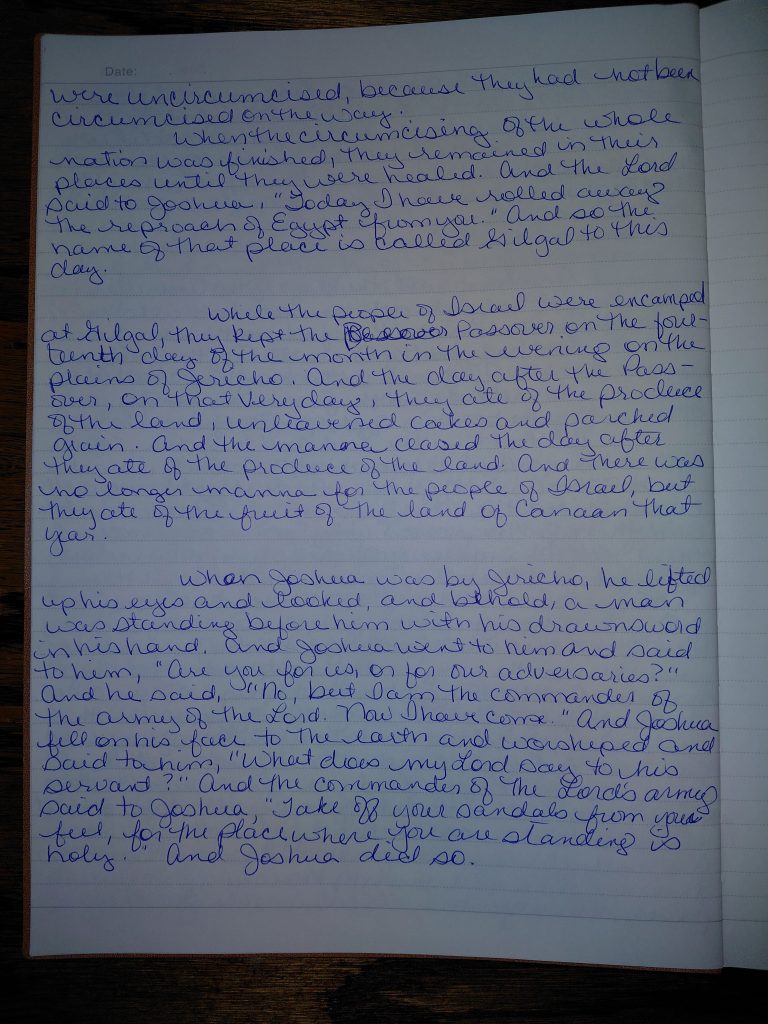 Date:
were uncircumcised, because they had not been
circumcised on the way.
When the circumcising of the whole
nation was finished, they remained in their
places until they were healed. And the Lord
said to Joshua, "Today I have rolled away
the reproach of Egypt from you." And so the
name of that place is called Gilgal to this
day.
While the people of Israel were encamped
at Gilgal, they kept the Passover on the four-
teenth day of the month in the evening on the
plains of Jericho. And the day after the Pass-
over, on that very day, they ate of the produce
of the land, unleavened cakes and parched
grain. And the manna ceased the day after
they ate of the produce of the land. And there was
no longer manna for the people of Israel, but
they ate of the fruit of the land of Canaan that
year.
When Joshua was by Jericho, he lifted
up his eyes and looked, and behold, a man
was standing before him with his drawn sword
in his hand. And Joshua went to him and said
to him, "Are you for us, or for our adversaries?"
And he said, "No, but I am the commander of
the army of the Lord. Now I have come." And Joshua
fell on his face to the earth and worshiped and
said to him, "What does my Lord say to his
servant?" And the commander of the Lord's army
said to Joshua, "Take off your sandals from your
feet, for the place where you are standing is
holy." And Joshua did so.